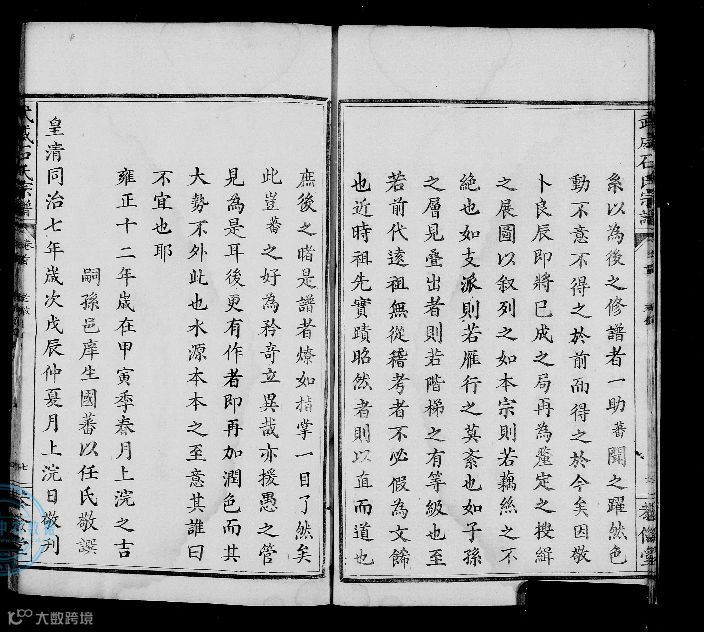 武威石氏宗譜
系以為後之修譜者一助蕃聞之躍然色
動不意不得之於前而得之於今矣因敬
卜良辰即將已成之局再為釐定之搜緝
之展圖以叙列之如本宗則若藕絲之不
絶也如支派則若雁行之莫紊也如子孫
之層見疊出者則若階梯之有等級也至
若前代遠祖無從稽考者不必假為文餙
也近時祖先實蹟昭然者則以直而道也
庶後之睹是譜者燎如指掌一目了然矣
此豈蕃之好為矜奇立異哉亦援愚之管
見為是耳後更有作者即再加潤色而其
大勢不外此也水源本本之至意其誰曰
不宜也耶
雍正十二年歲在甲寅季春月上浣之吉
嗣孫邑庠生國蕃以任氏敬譔
皇清同治七年歲次戊辰仲夏月上浣日敬刊
武威石氏宗譜
卷首
大数跨境